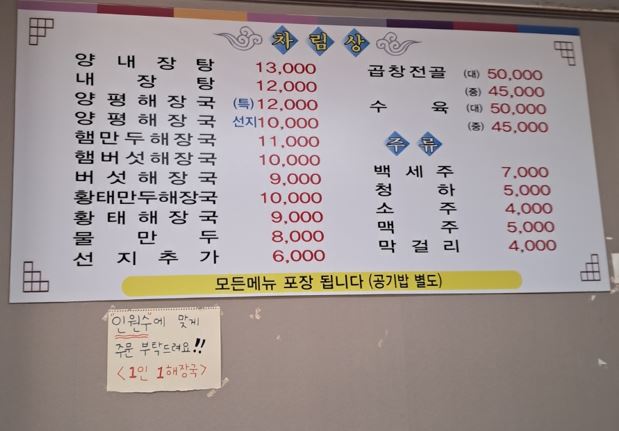 차림상
양내장탕 13,000
내장탕 12,000
양평해장국 (특) 12,000
양평해장국 선지 10,000
햄만두해장국 11,000
햄버섯해장국 10,000
버섯해장국 9,000
황태만두해장국 10,000
황태해장국 9,000
물만두 8,000
선지추가 6,000
곱창전골 (대) 50,000
(중) 45,000
수육 (대) 50,000
(중) 45,000
주류
백세주 7,000
청하 5,000
소주 4,000
맥주 5,000
막걸리 4,000
모든메뉴 포장 됩니다 (공기밥 별도)
인원수에 맞게
주문 부탁드려요!!
<1인 1해장국>